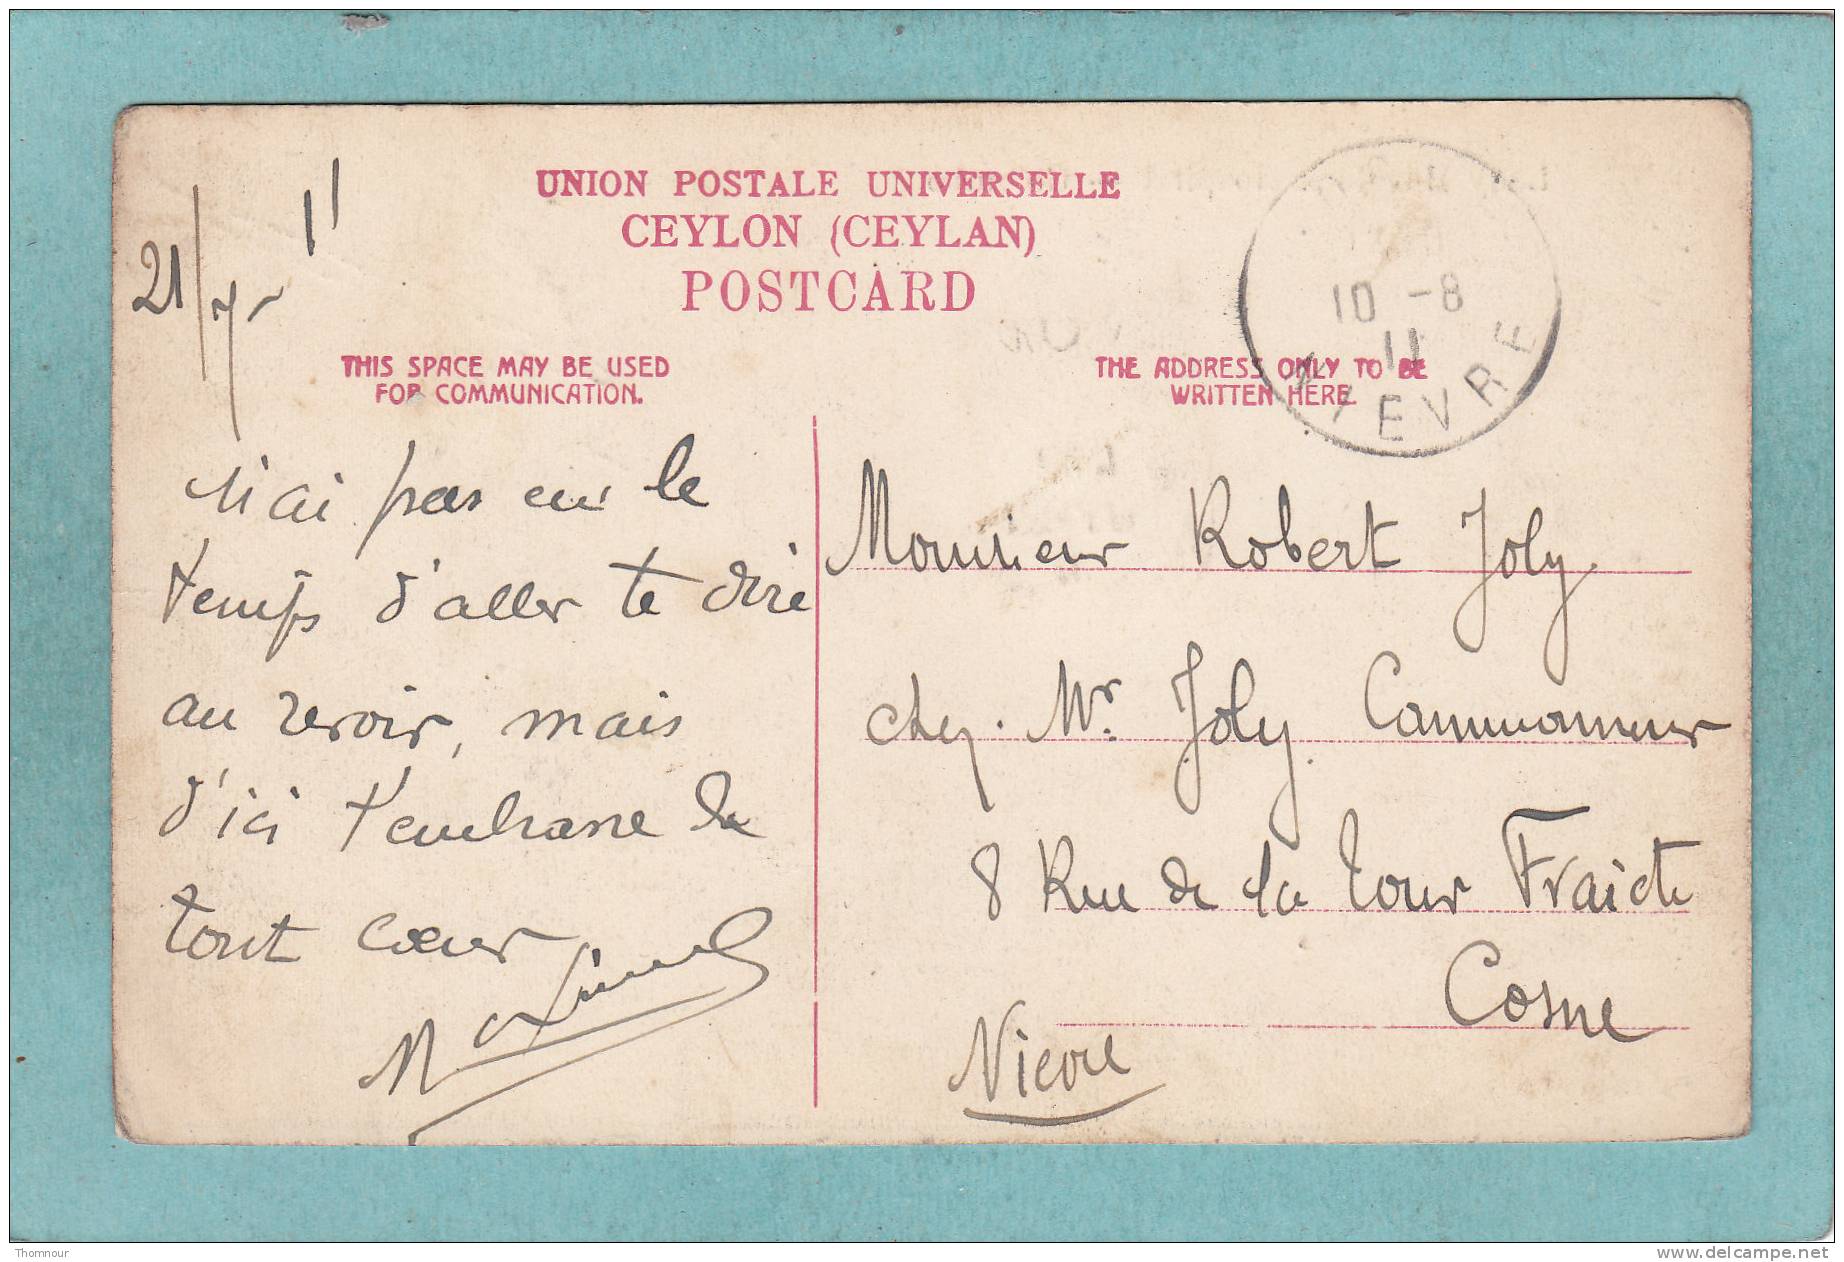 UNION POSTALE UNIVERSELLE
CEYLON (CEYLAN)
POSTCARD
21/7 11
THIS SPACE MAY BE USED
FOR COMMUNICATION.
THE ADDRESS ONLY TO BE
WRITTEN HERE.
10 -8
11
NIEVRE
N'ai pas eu le
temps d'aller te dire
au revoir, mais
d'ici t'embrasse de
tout cœur
Maxime
Monsieur Robert Joly
chez Mr. Joly
8 Rue de la Tour Fraiche
Cosne
Nievre
Thomnour
www.delcampe.net